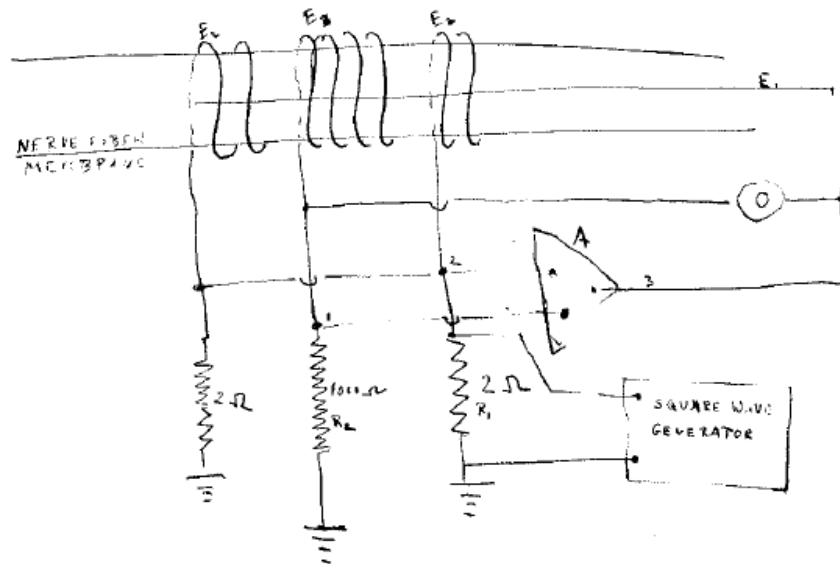 E₂ E₃ E₂
E₁
NERVE FIBER
MEMBRANE
O
A
2
3
1
2 Ω
1000 Ω
R₂
2 Ω
R₁
SQUARE WAVE
GENERATOR